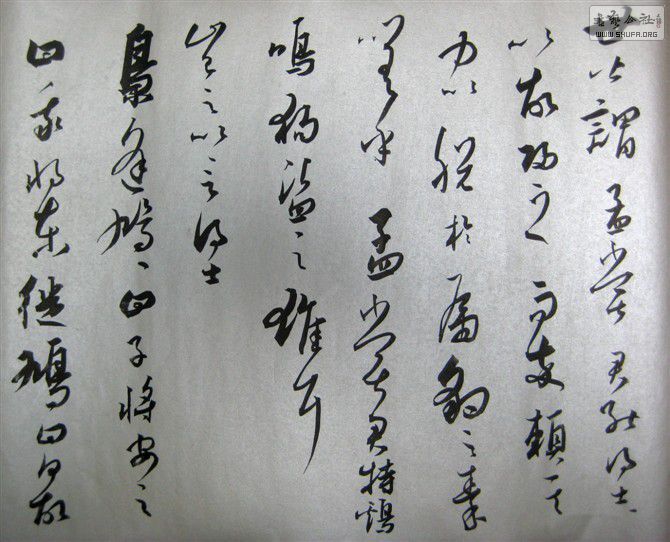 書藝公社
WWW.SHUFA.ORG
世皆謂孟嘗君能得士、
以故歸之而卒賴其
力以脫於虎豹之秦
嗟乎孟嘗君特鷄
鳴狗盜之雄耳
豈足以言得士
梟逢鳩、曰子將安之
曰我將東徙鳩曰何故